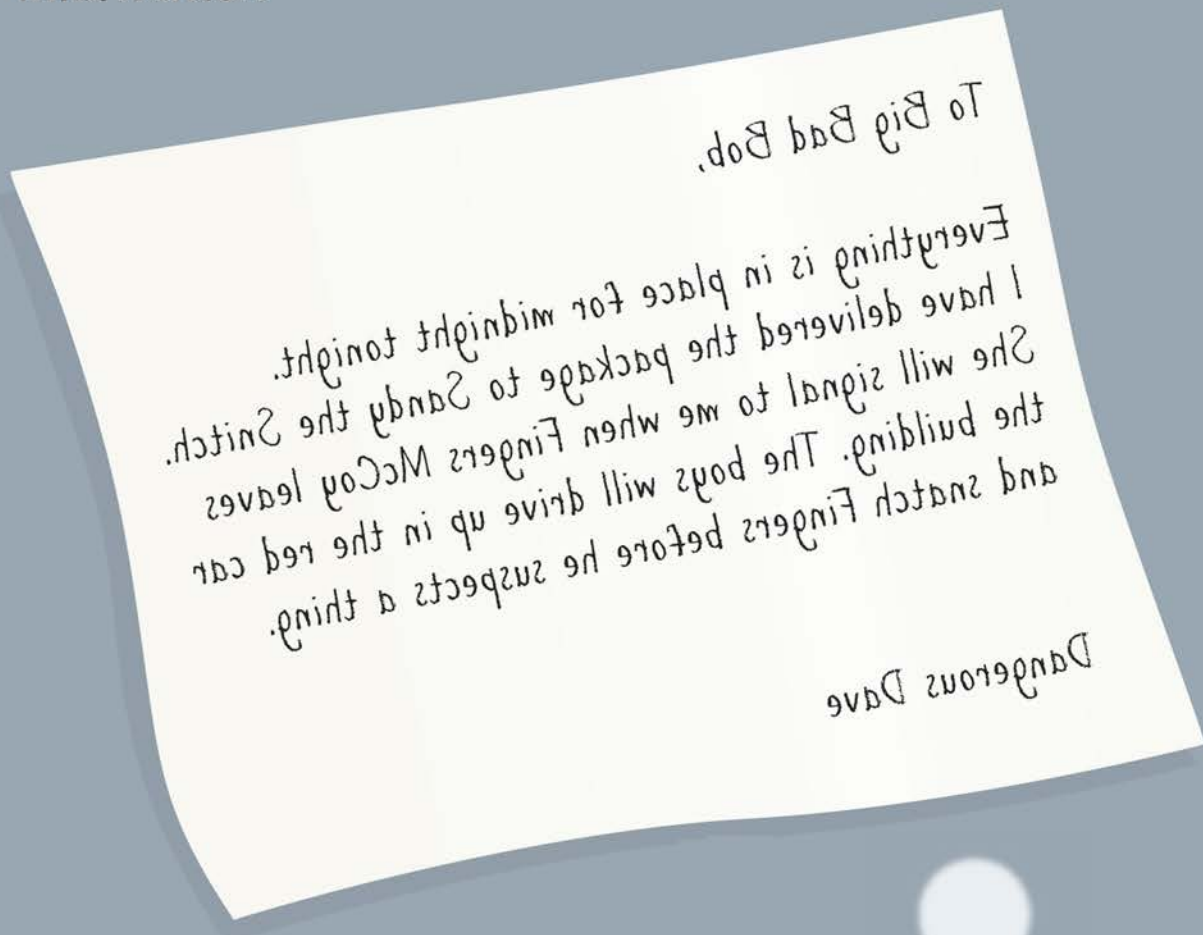 To Big Bad Bob,
Everything is in place for midnight tonight.
I have delivered the package to Sandy the Snitch.
She will signal to me when Fingers McCoy leaves
the building. The boys will drive up in the red car
and snatch Fingers before he suspects a thing.
Dangerous Dave